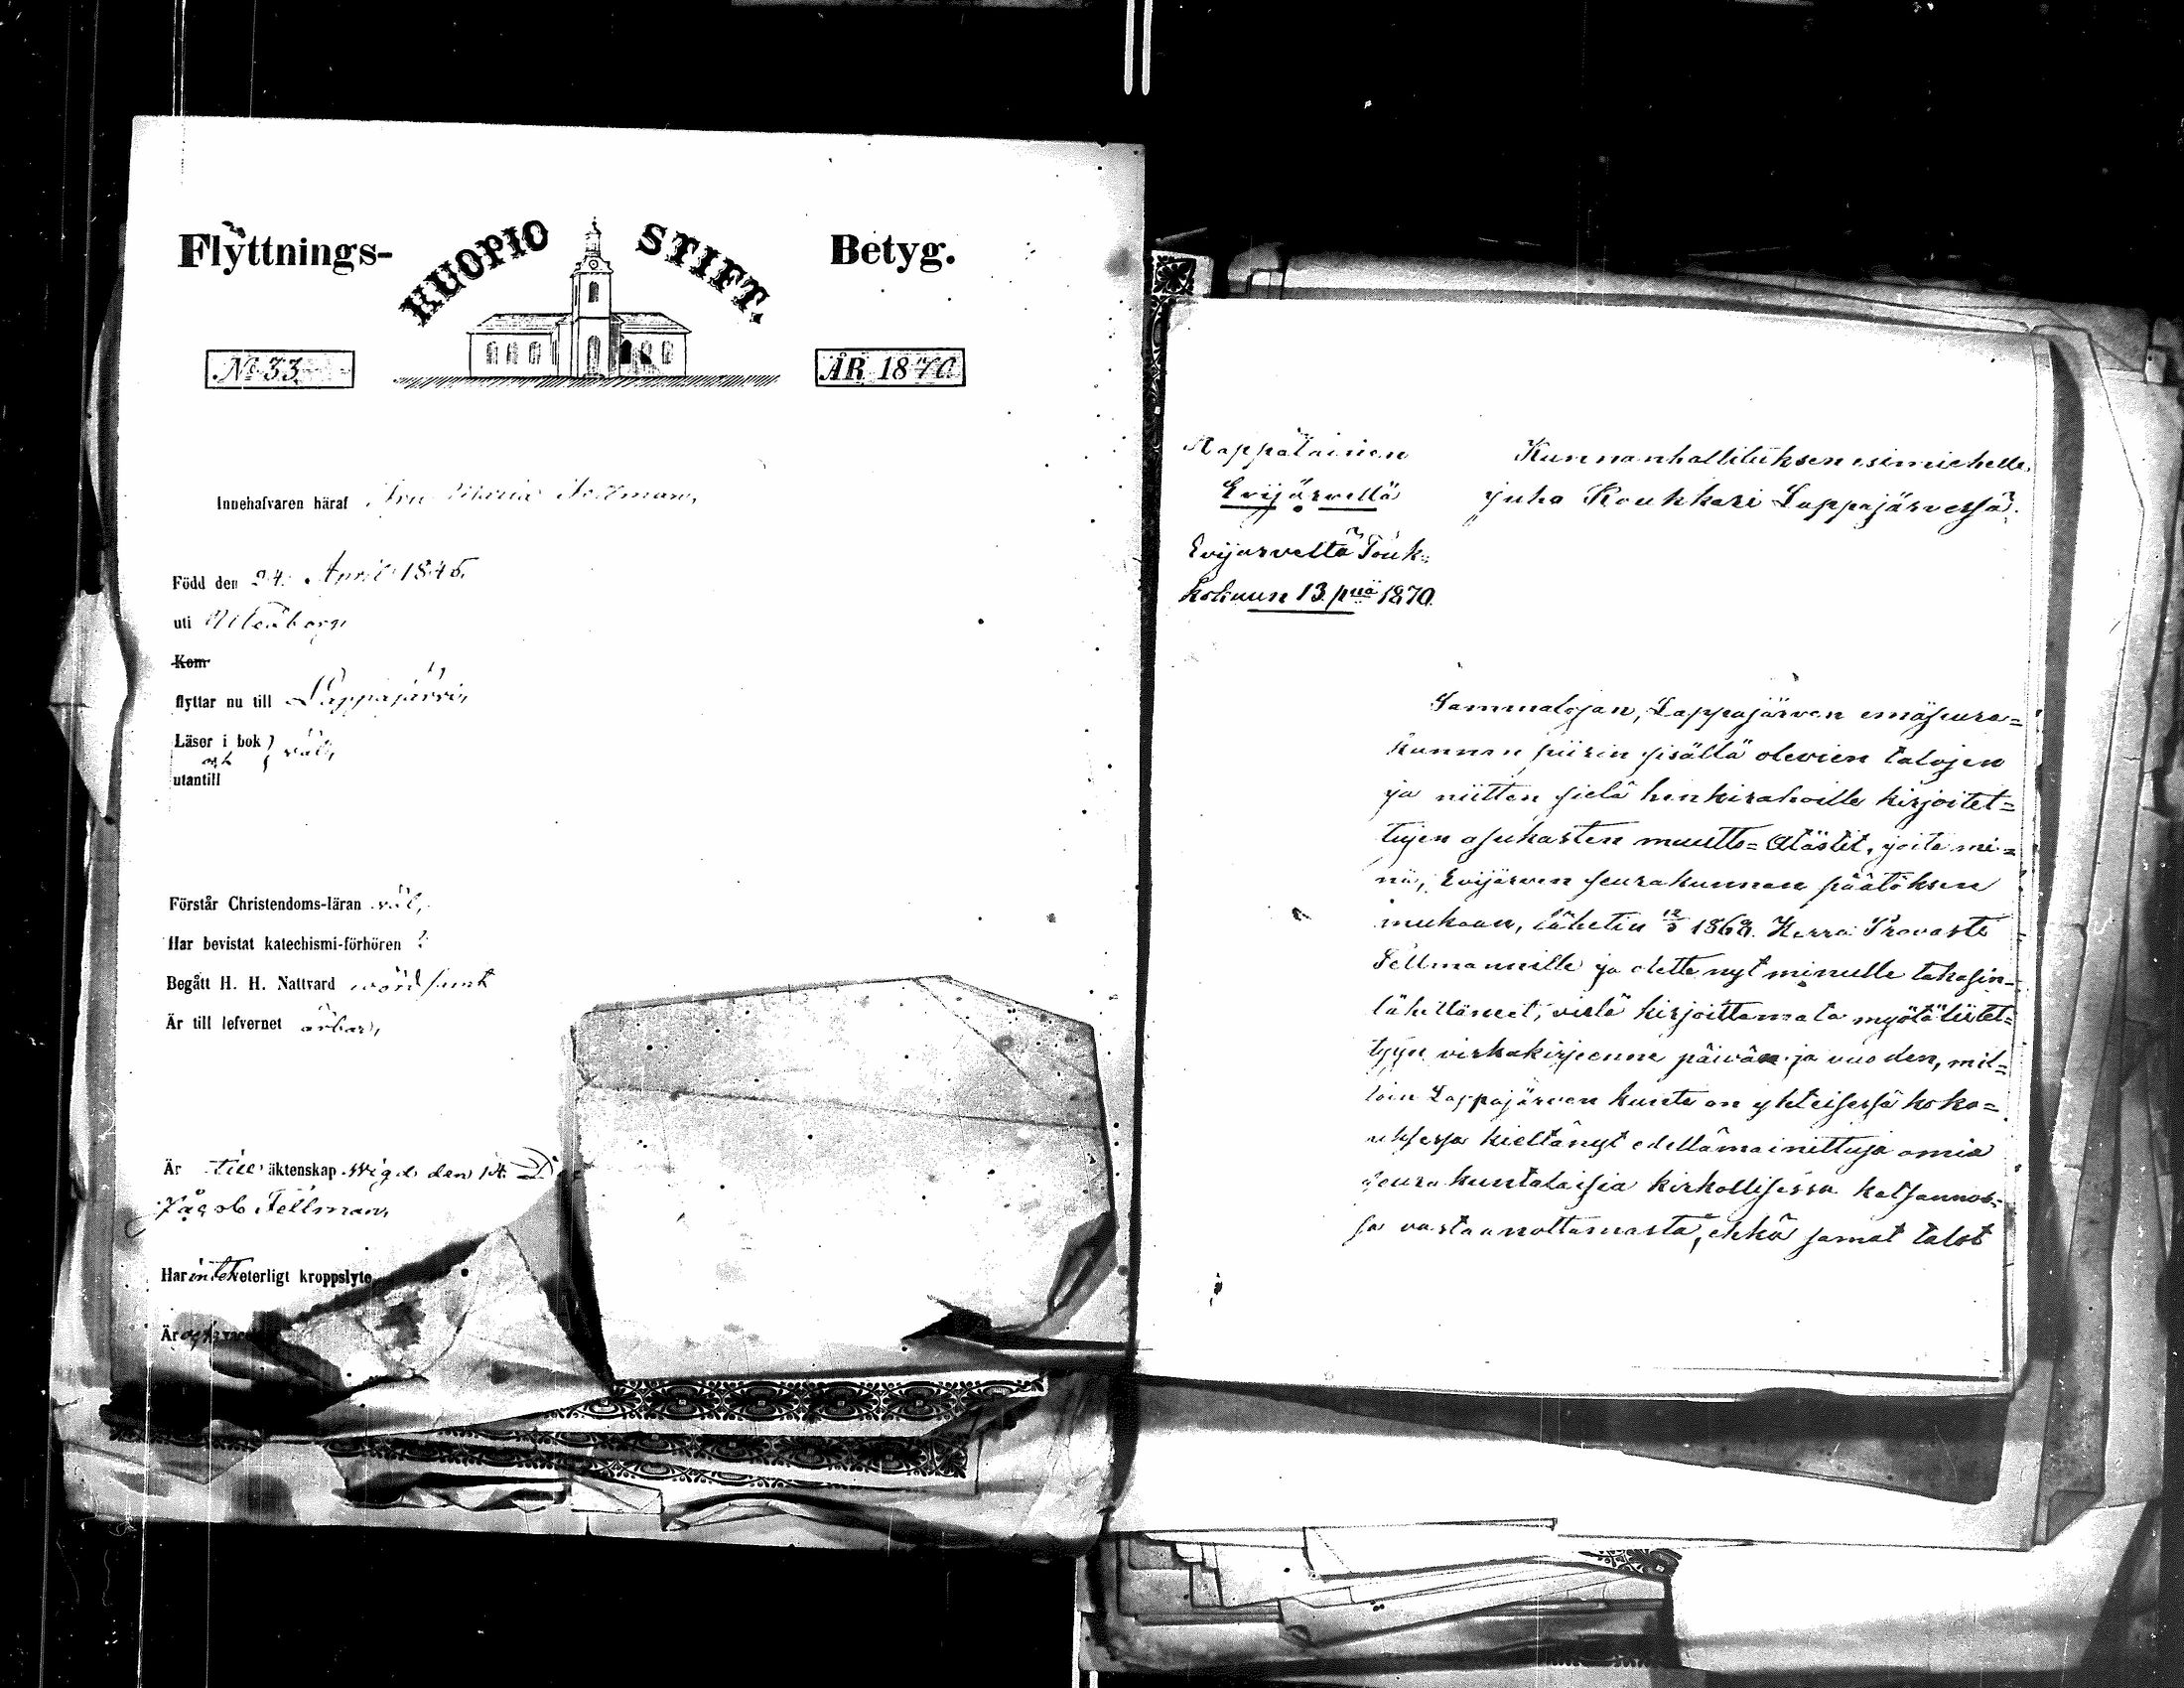 Flyttnings- KUOPIO STIFT. Betyg.
No 33
ÅR 1870
Innehafvaren häraf Maria
Född den 24 April 1846
uti
Kom
flyttar nu till Lappajärvi,
Läser i bok } väl,
och
utantill
Förstår Christendoms-läran väl,
Har bevistat katechismi-förhören ?
Begått H. H. Nattvard wördsamt
Är till lefvernet ärbar,
Är till äktenskap wigd den 14
Jacob Fellman,
Har intet veterligt kroppslyte
Är
Kappalainen
Evijärvellä
Evijärveltä Touko-
kokuun 13 pnä 1870.
Kunnanhallituksen esimiehelle,
Juho Kouhkari Lappajärvessä.
Sammalojan, Lappajärven emäseura=
kunnan piirin sisällä olevien talojen
ja niitten sielä henkirahoille kirjoitet=
tujen asukasten muutto=Atästit, joita mi=
nä, Evijärven seurakunnan päätöksen
mukaan, lähetin 1869. Herra Provasti
Fellmannille ja olette nyt minulle takasin-
lähettäneet, vielä kirjoittamata myötäliitet=
tyyn virkakirjeenne päivän ja vuoden, mil=
loin Lappajärven kunta on yhteisessä koko=
uksessa kieltänyt edellämainittuja omia
seurakuntalaisia kirkollisessa katsannos-
sa vastaanottamasta, ehkä samat talot